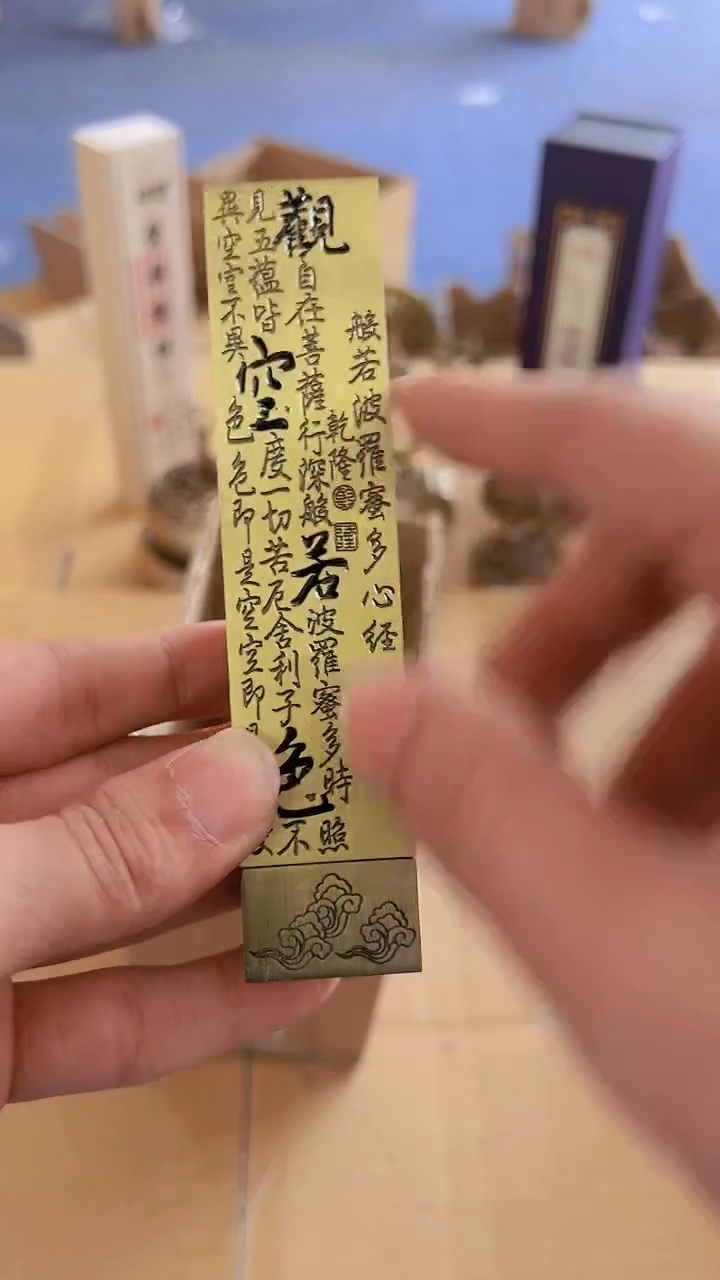 般若波羅蜜多心経
乾隆
觀自在菩薩行深般若波羅蜜多時照
見五蘊皆空度一切苦厄舍利子色不
異空空不異色色即是空空即